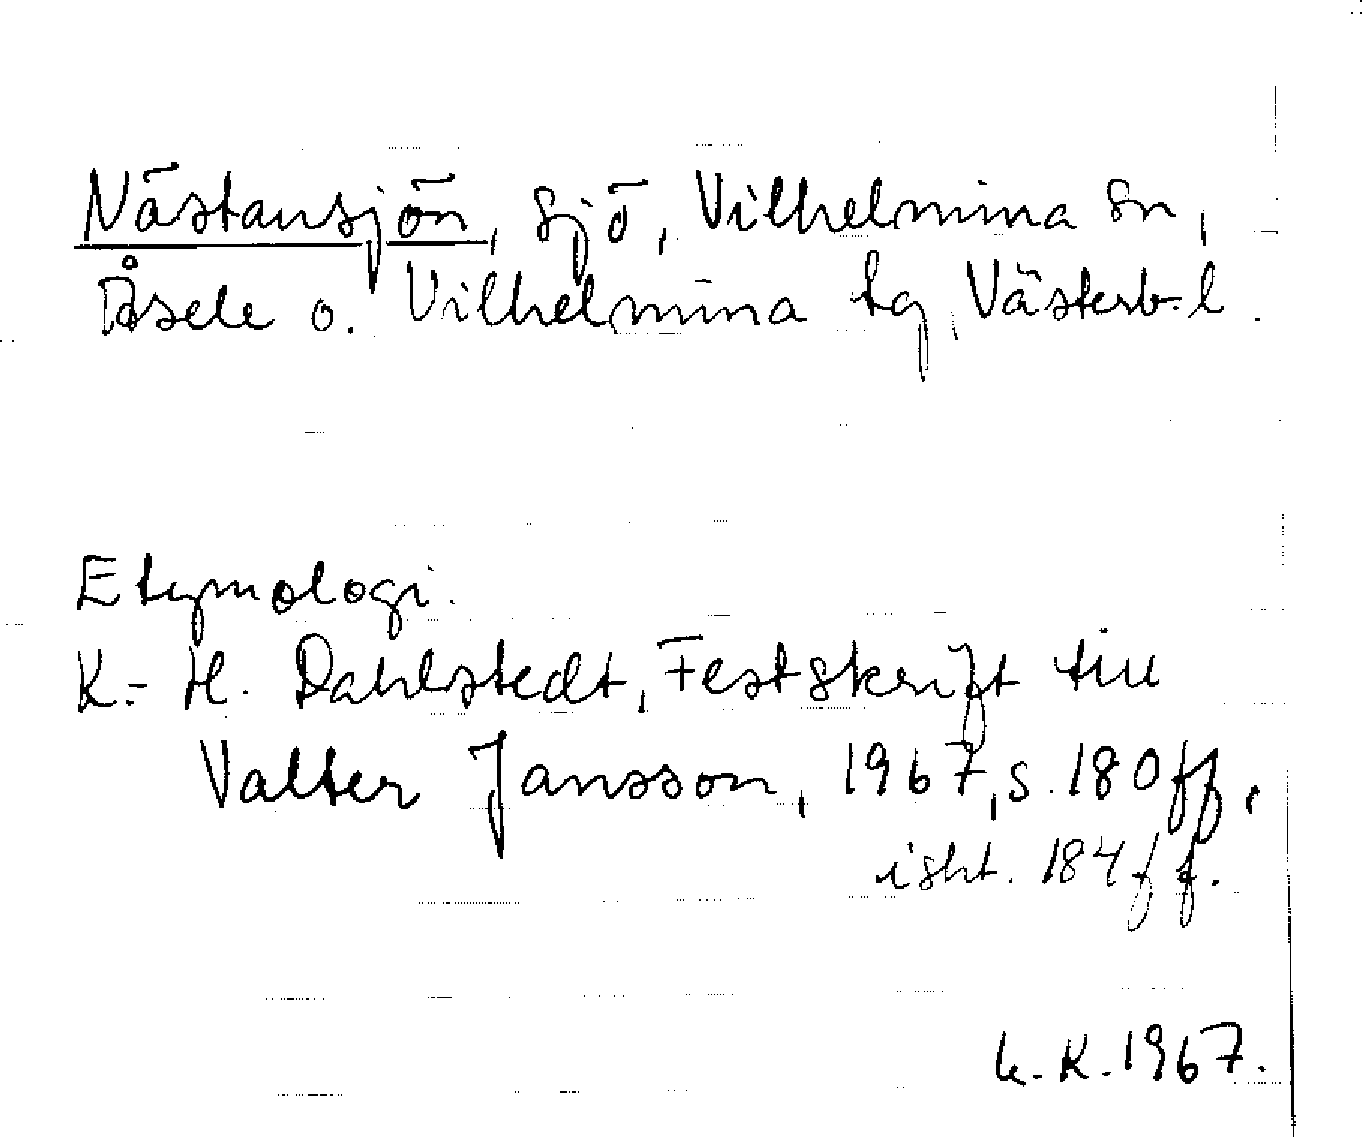 Nästansjön, sjö, Vilhelmina sn,
Åsele o. Vilhelmina tg, Västerb-l.
Etymologi.
K.-H. Dahlstedt, Festskrift till
Valter Jansson, 1967, s. 180 ff,
isht. 184 ff.
K. 1967.